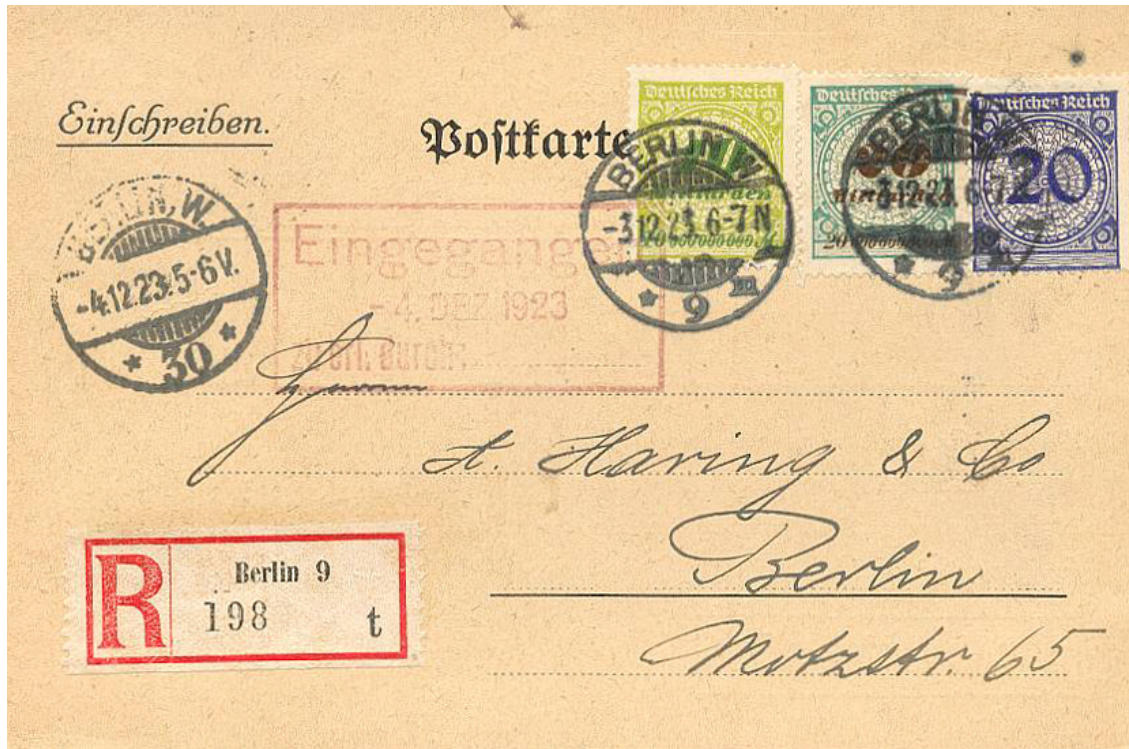 Einschreiben.
Postkarte
Deutsches Reich
Deutsches Reich
Deutsches Reich
20
BERLIN, W.
-4.12.23.5-6 V.
* 30 *
BERLIN W
-3.12.23. 6-7 N
* 9
BERLIN
-3.12.23. 6-7
* 9
Eingegangen
-4. DEZ. 1923
Herrn
A. Haring & Co
Berlin
Motzstr. 65
R
Berlin 9
198 t